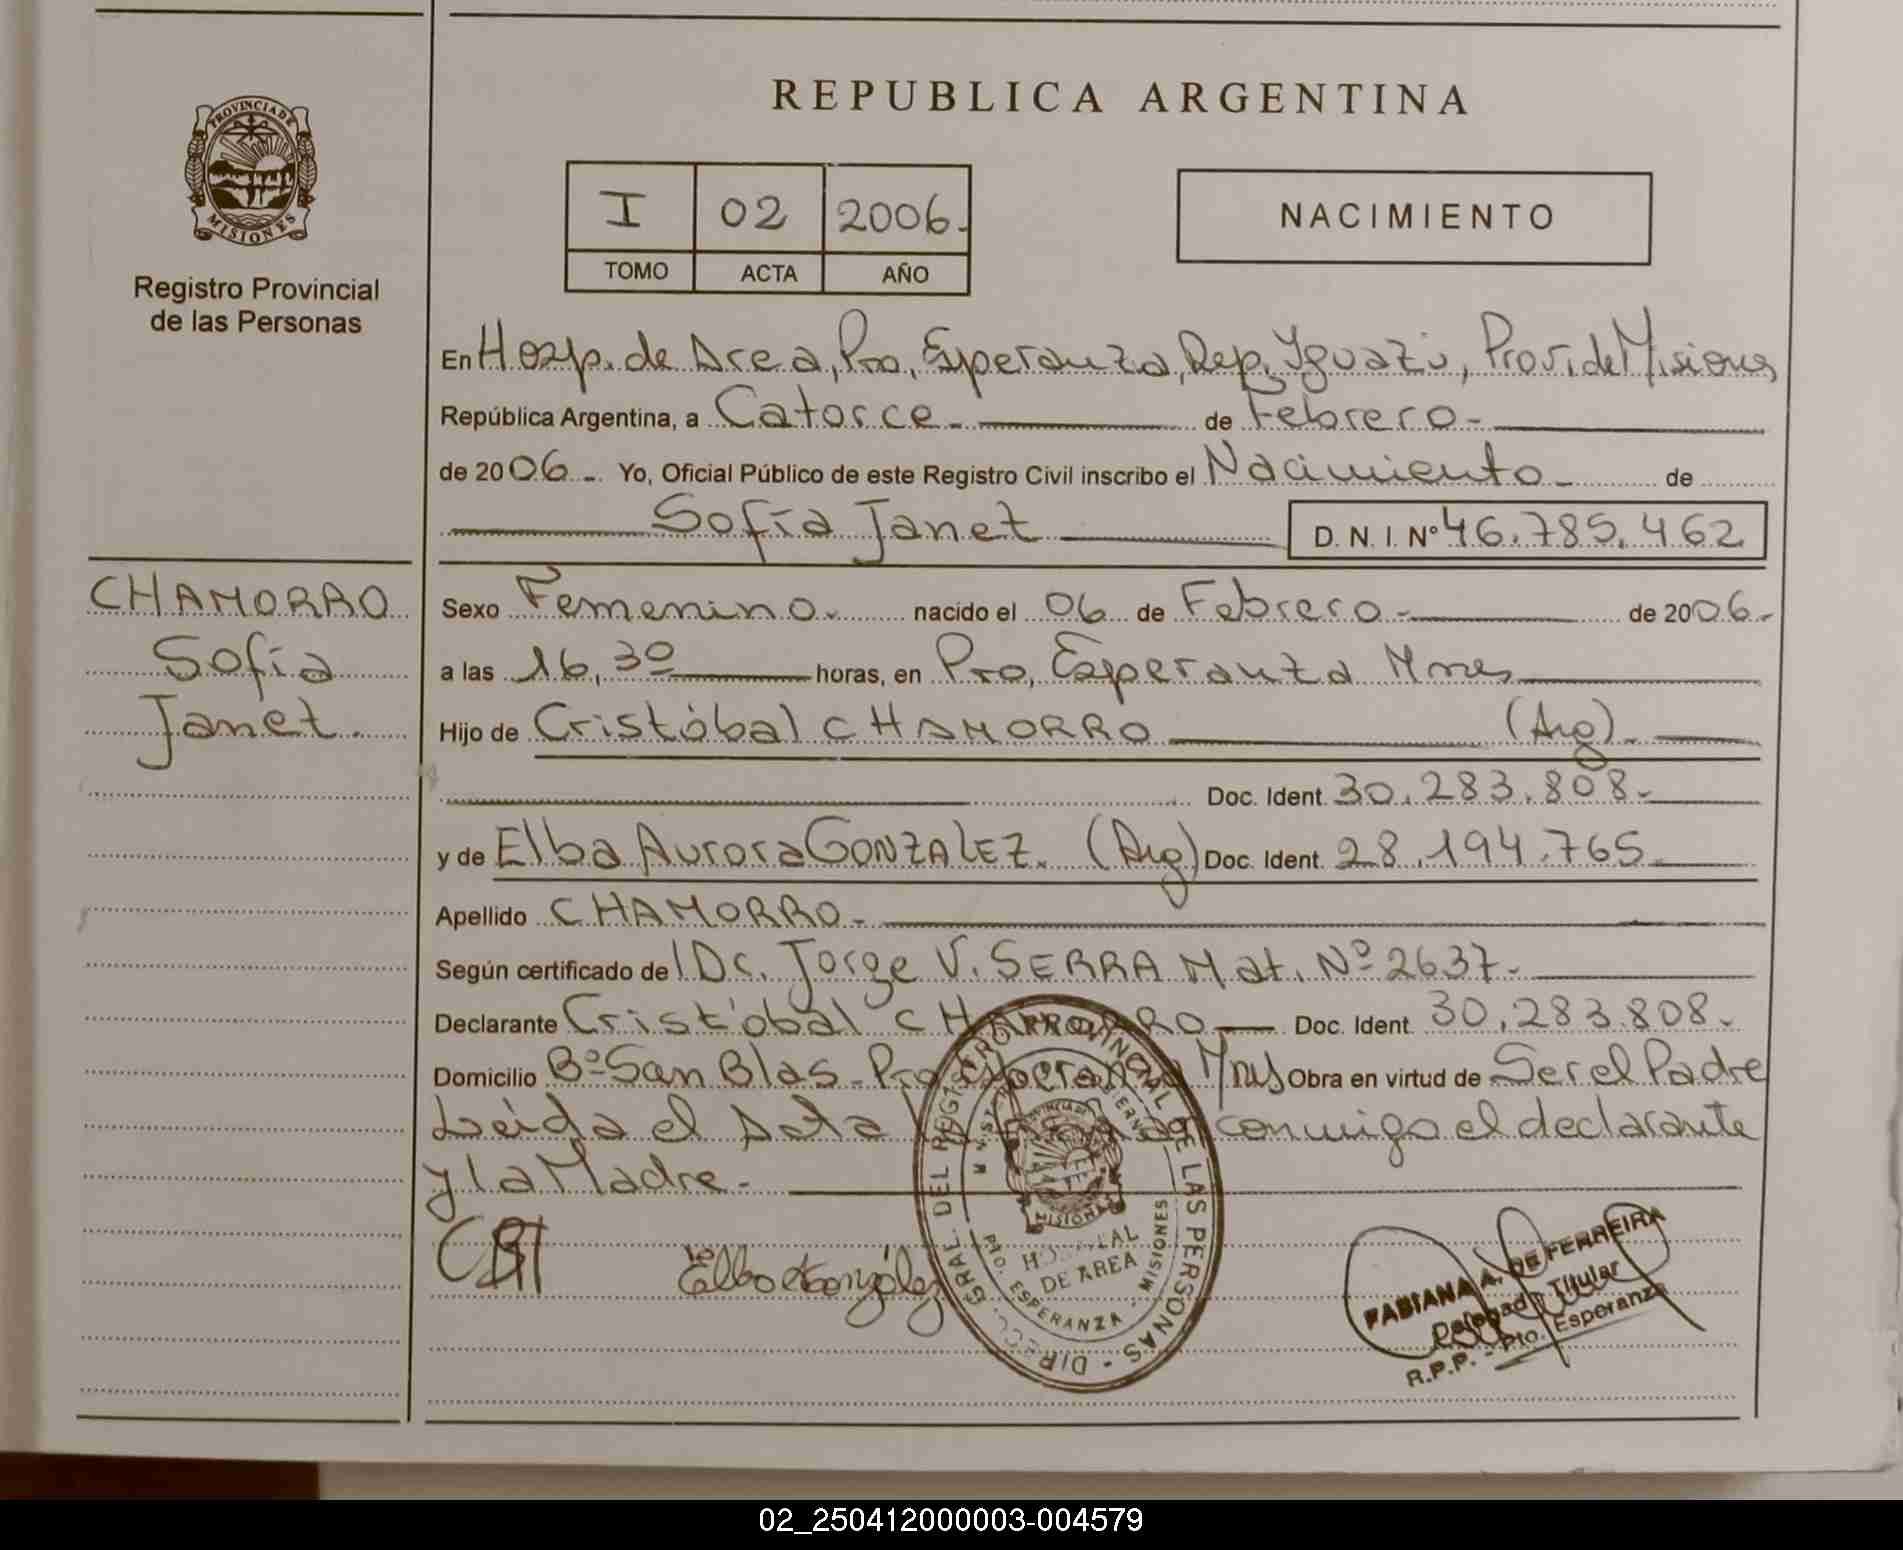 REPUBLICA ARGENTINA
PROVINCIA DE
MISIONES
Registro Provincial
de las Personas
I 02 2006.
TOMO ACTA AÑO
NACIMIENTO
En Hosp. de Area, Pto, Esperanza, Dep, Iguazú, Prov, de Misiones
República Argentina, a Catorce. de Febrero.
de 2006. Yo, Oficial Público de este Registro Civil inscribo el Nacimiento. de
Sofía Janet D. N. I. Nº 46.785.462
CHAMORRO
Sofía
Janet.
Sexo Femenino. nacido el 06 de Febrero. de 2006.
a las 16,30 horas, en Pto, Esperanza Mnes
Hijo de Cristóbal CHAMORRO (Arg).
Doc. Ident. 30.283.808.
y de Elba Aurora GONZALEZ. (Arg) Doc. Ident. 28.194.765.
Apellido CHAMORRO.
Según certificado del Dr. Jorge V. SERRA Mat. Nº 2637.
Declarante Cristóbal CHAMORRO Doc. Ident. 30.283.808.
Domicilio Bº San Blas. Pto Esperanza Mnes Obra en virtud de Ser el Padre
Leída el Acta conmigo el declarante
y la Madre.
Elba A González
DIRECC. GRAL. DEL REGISTRO PROVINCIAL DE LAS PERSONAS
MISIONES
HOSPITAL
DE AREA
PTO. ESPERANZA - MISIONES
FABIANA A. DE FERREIRA
Delegada Titular
R.P.P. - Pto. Esperanza
02_250412000003-004579